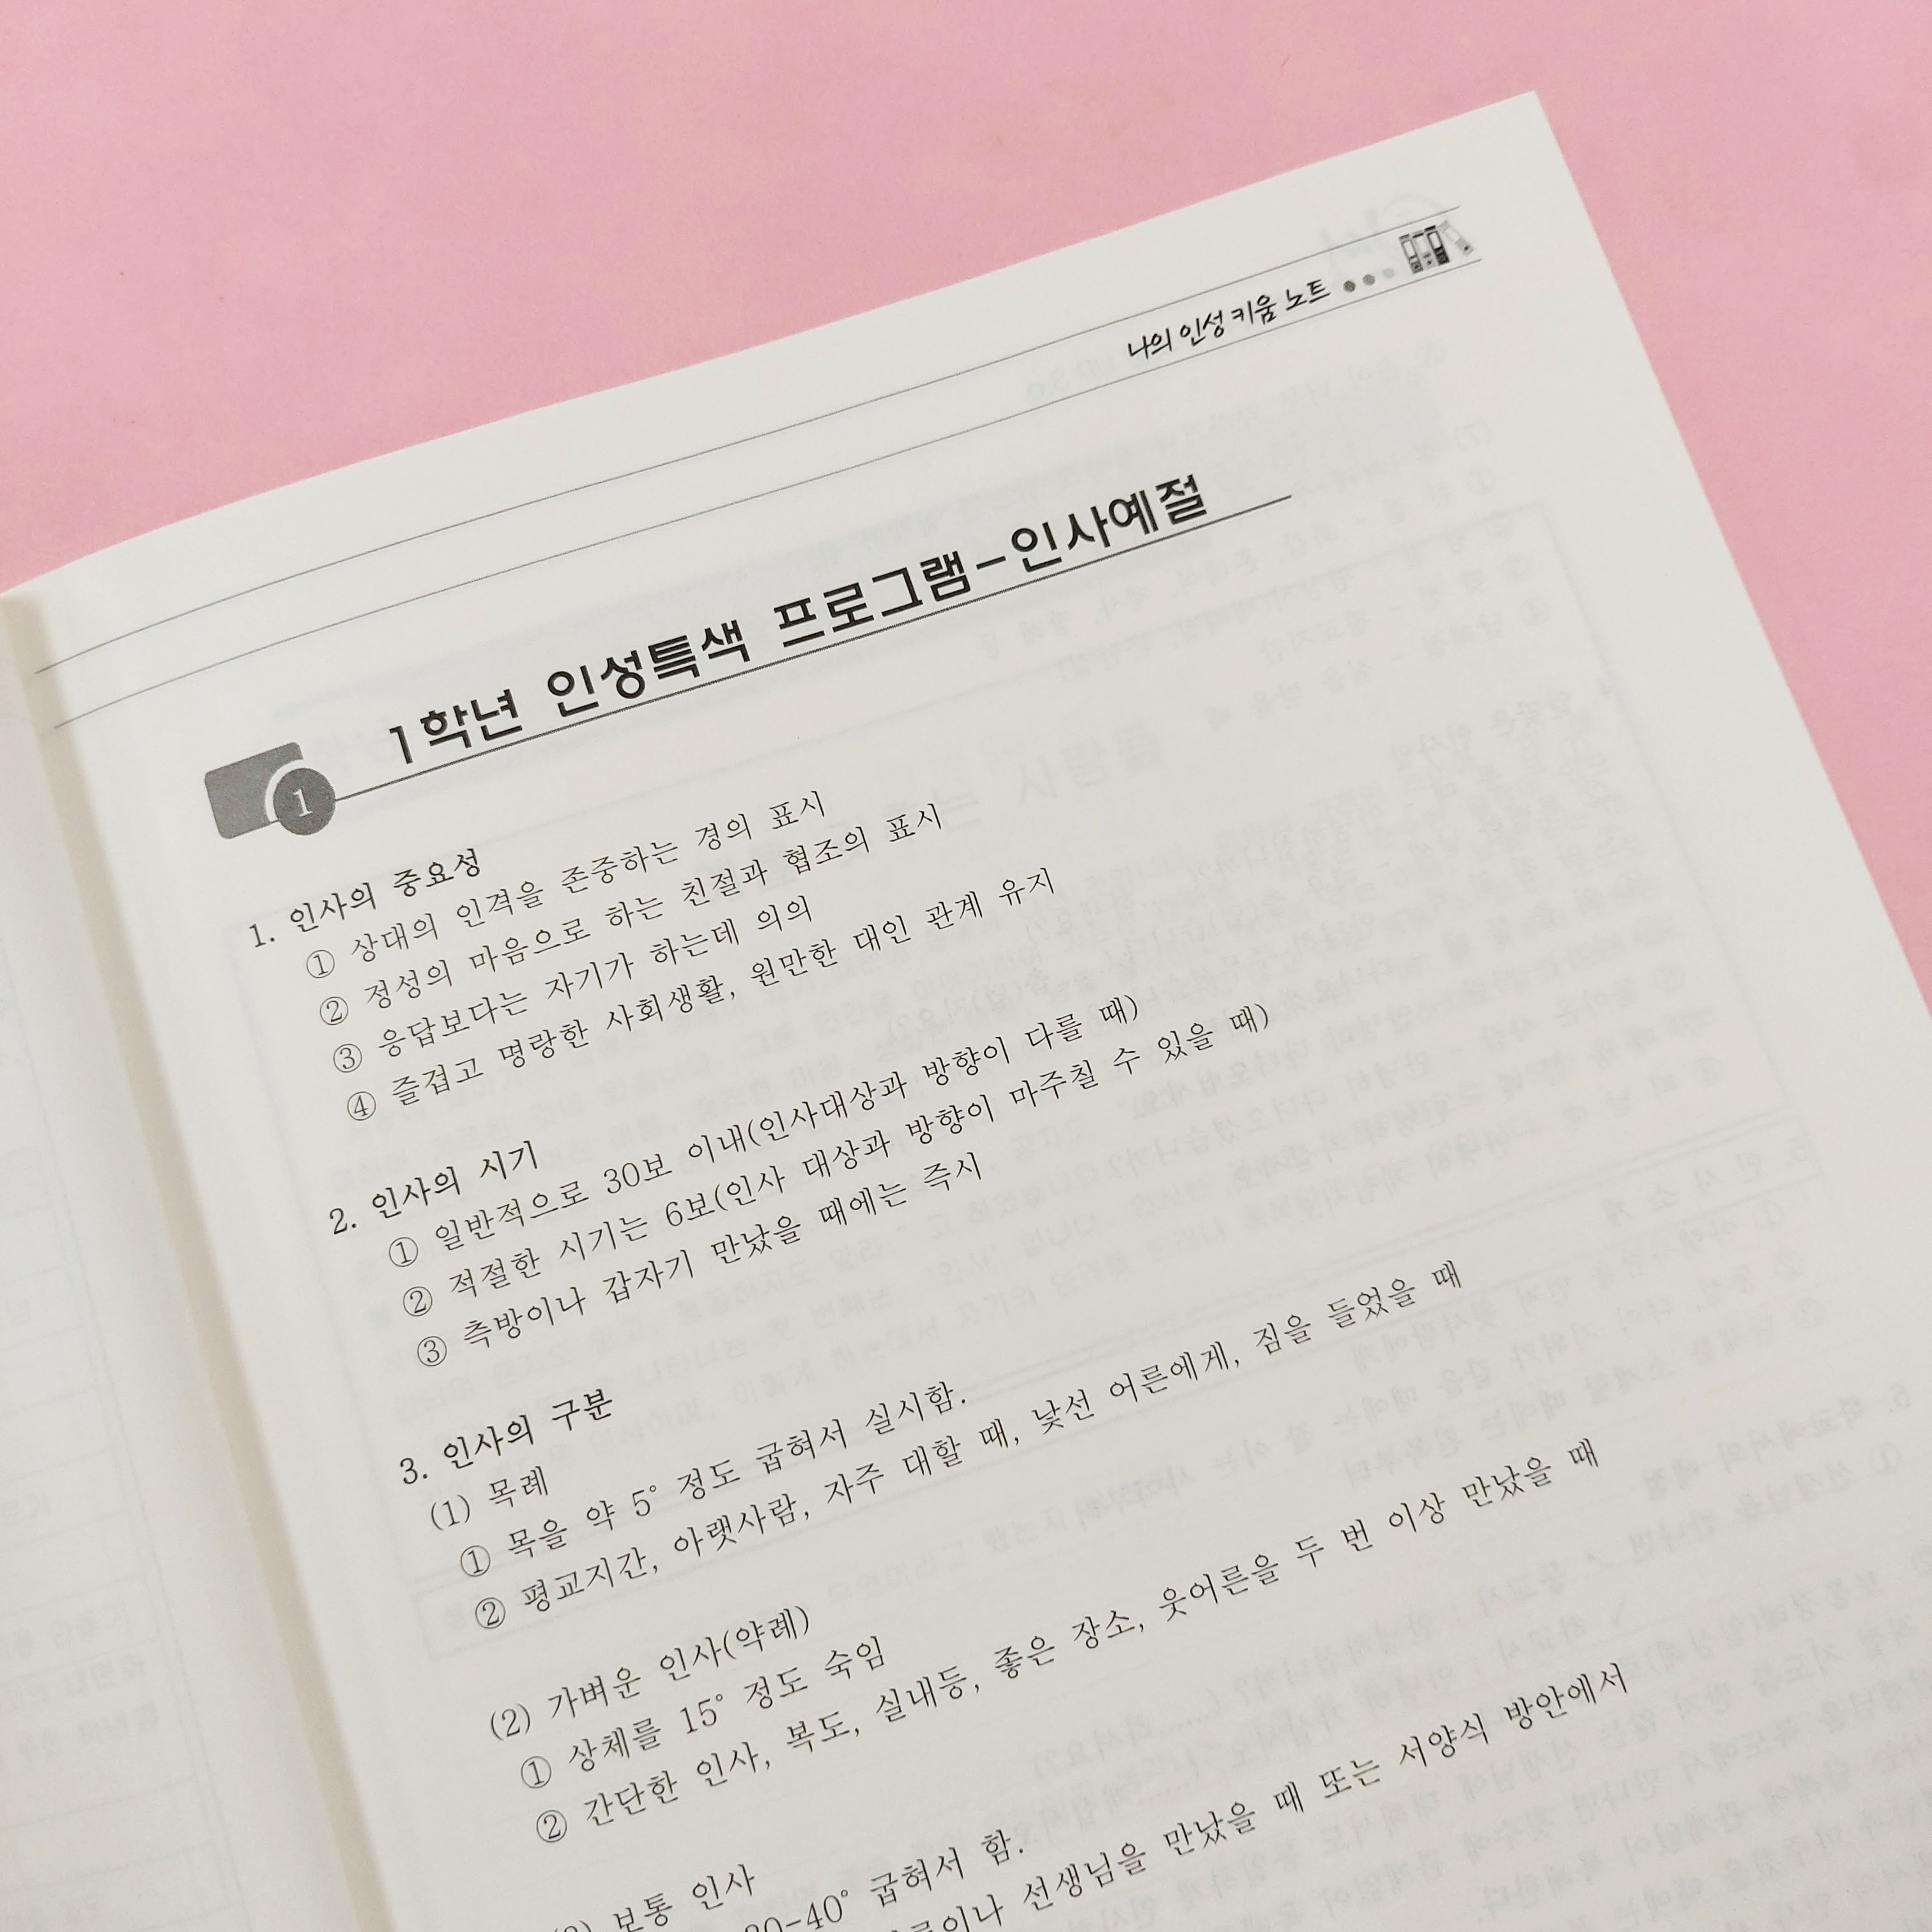 나의 인성 키움 노트
1
1학년 인성특색 프로그램-인사예절
1. 인사의 중요성
① 상대의 인격을 존중하는 경의 표시
② 정성의 마음으로 하는 친절과 협조의 표시
③ 응답보다는 자기가 하는데 의의
④ 즐겁고 명랑한 사회생활, 원만한 대인 관계 유지
2. 인사의 시기
① 일반적으로 30보 이내(인사대상과 방향이 다를 때)
② 적절한 시기는 6보(인사 대상과 방향이 마주칠 수 있을 때)
③ 측방이나 갑자기 만났을 때에는 즉시
3. 인사의 구분
(1) 목례
① 목을 약 5° 정도 굽혀서 실시함.
② 평교지간, 아랫사람, 자주 대할 때, 낯선 어른에게, 짐을 들었을 때
(2) 가벼운 인사(약례)
① 상체를 15° 정도 숙임
② 간단한 인사, 복도, 실내등, 좋은 장소, 웃어른을 두 번 이상 만났을 때
보통 인사
-40° 굽혀서 함.
선생님을 만났을 때 또는 서양식 방안에서